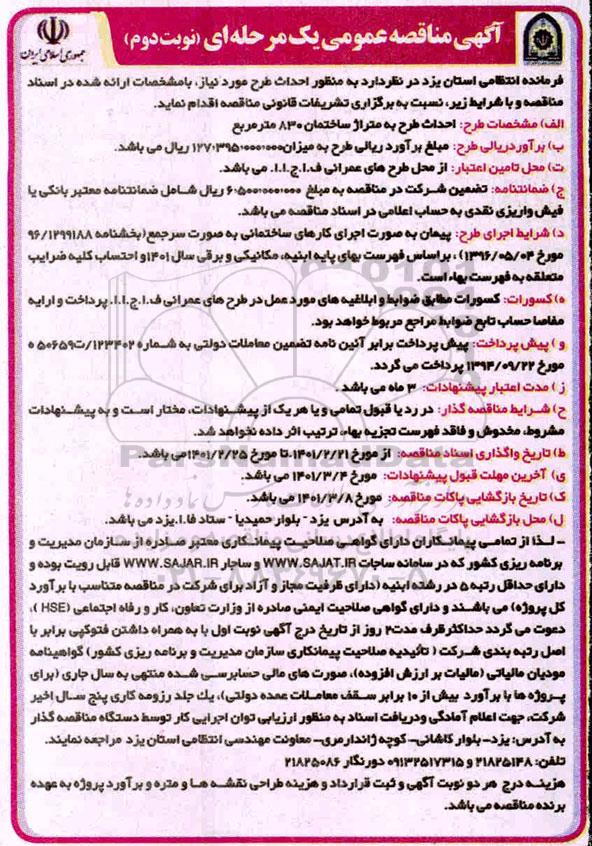 جمهوری اسلامی ایران
آگهی مناقصه عمومی یک مرحله‌ای (نوبت دوم)
فرمانده انتظامی استان یزد در نظردارد به منظور احداث طرح مورد نیاز، بامشخصات ارائه شده در اسناد
مناقصه و با شرایط زیر، نسبت به برگزاری تشریفات قانونی مناقصه اقدام نماید.
الف) مشخصات طرح: احداث طرح به متراژ ساختمان ۸۳۰ مترمربع
ب) برآوردریالی طرح: مبلغ برآورد ریالی طرح به میزان ۱۲۷/۳۹۵/۰۰۰/۰۰۰ ریال می باشد.
ت) محل تامین اعتبار: از محل طرح های عمرانی ف.ا.ج.ا.ا. می باشد.
ج) ضمانتنامه: تضمین شرکت در مناقصه به مبلغ ۶/۵۰۰/۰۰۰/۰۰۰ ریال شامل ضمانتنامه معتبر بانکی یا
فیش واریزی نقدی به حساب اعلامی در اسناد مناقصه می باشد.
د) شرایط اجرای طرح: پیمان به صورت اجرای کارهای ساختمانی به صورت سرجمع(بخشنامه ۹۶/۱۲۹۹۱۸۸
مورخ ۱۳۹۶/۰۵/۰۴) ، براساس فهرست بهای پایه ابنیه، مکانیکی و برقی سال ۱۴۰۱و احتساب کلیه ضرایب
متعلقه به فهرست بهاء است.
ه) کسورات: کسورات مطابق ضوابط و ابلاغیه های مورد عمل در طرح های عمرانی ف.ا.ج.ا.ا. پرداخت و ارایه
مفاصا حساب تابع ضوابط مراجع مربوط خواهد بود.
و ) پیش پرداخت: پیش پرداخت برابر آئین نامه تضمین معاملات دولتی به شماره ۱۲۳۴۰۲/ت۵۰۶۵۹ ه
مورخ ۱۳۹۴/۰۹/۲۲ پرداخت می گردد.
ز ) مدت اعتبار پیشنهادات: ۳ ماه می باشد .
ح) شرایط مناقصه گذار: در رد یا قبول تمامی و یا هر یک از پیشنهادات، مختار است و به پیشنهادات
مشروط، مخدوش و فاقد فهرست تجزیه بهاء، ترتیب اثر داده نخواهد شد.
ط) تاریخ واگذاری اسناد مناقصه: از مورخ ۱۴۰۱/۲/۲۱ تا مورخ ۱۴۰۱/۲/۲۵می باشد.
ی) آخرین مهلت قبول پیشنهادات: مورخ ۱۴۰۱/۳/۴ می باشد.
ک) تاریخ بازگشایی پاکات مناقصه: مورخ ۱۴۰۱/۳/۸ می باشد.
ل) محل بازگشایی پاکات مناقصه: به آدرس یزد- بلوار حمیدیا - ستاد فا.ا.یزد می باشد.
- لذا از تمامی پیمانکاران دارای گواهی صلاحیت پیمانکاری معتبر صادره از سازمان مدیریت و
برنامه ریزی کشور که در سامانه ساجات WWW.SAJAT.IR و ساجار WWW.SAJAR.IR قابل رویت بوده و
دارای حداقل رتبه ۵ در رشته ابنیه (دارای ظرفیت مجاز و آزاد برای شرکت در مناقصه متناسب با برآورد
کل پروژه) می باشند و دارای گواهی صلاحیت ایمنی صادره از وزارت تعاون، کار و رفاه اجتماعی (HSE )،
دعوت می گردد حداکثرظرف مدت۲ روز از تاریخ درج آگهی نوبت اول با به همراه داشتن فتوکپی برابر با
اصل رتبه بندی شرکت ( تائیدیه صلاحیت پیمانکاری سازمان مدیریت و برنامه ریزی کشور) گواهینامه
مودیان مالیاتی (مالیات بر ارزش افزوده)، صورت های مالی حسابرسی شده منتهی به سال جاری (برای
پروژه ها با برآورد بیش از ۱۰ برابر سقف معاملات عمده دولتی)، یک جلد رزومه کاری پنج سال اخیر
شرکت، جهت اعلام آمادگی ودریافت اسناد به منظور ارزیابی توان اجرایی کار توسط دستگاه مناقصه گذار
به آدرس: یزد- بلوار کاشانی- کوچه ژاندارمری- معاونت مهندسی انتظامی استان یزد مراجعه نمایند.
تلفن: ۲۱۸۲۵۱۴۸ و ۰۹۱۳۲۵۱۷۳۱۵ دورنگار ۲۱۸۲۵۰۸۶
هزینه درج هر دو نوبت آگهی و ثبت قرارداد و هزینه طراحی نقشه ها و متره و برآورد پروژه به عهده
برنده مناقصه می باشد.
ParsNamadData
۰۲۱-۸۸۳۴۹۶۷۰-۵